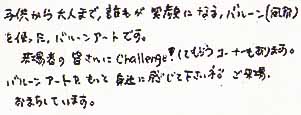 子供から大人まで、誰もが笑顔になる、バルーン(風船)
を使った、バルーンアートです。
来場者の皆さんにchallenge!してもらうコーナーもあります。
バルーンアートをもっと身近に感じて下さいネ♪ご来場、
お待ちしています。